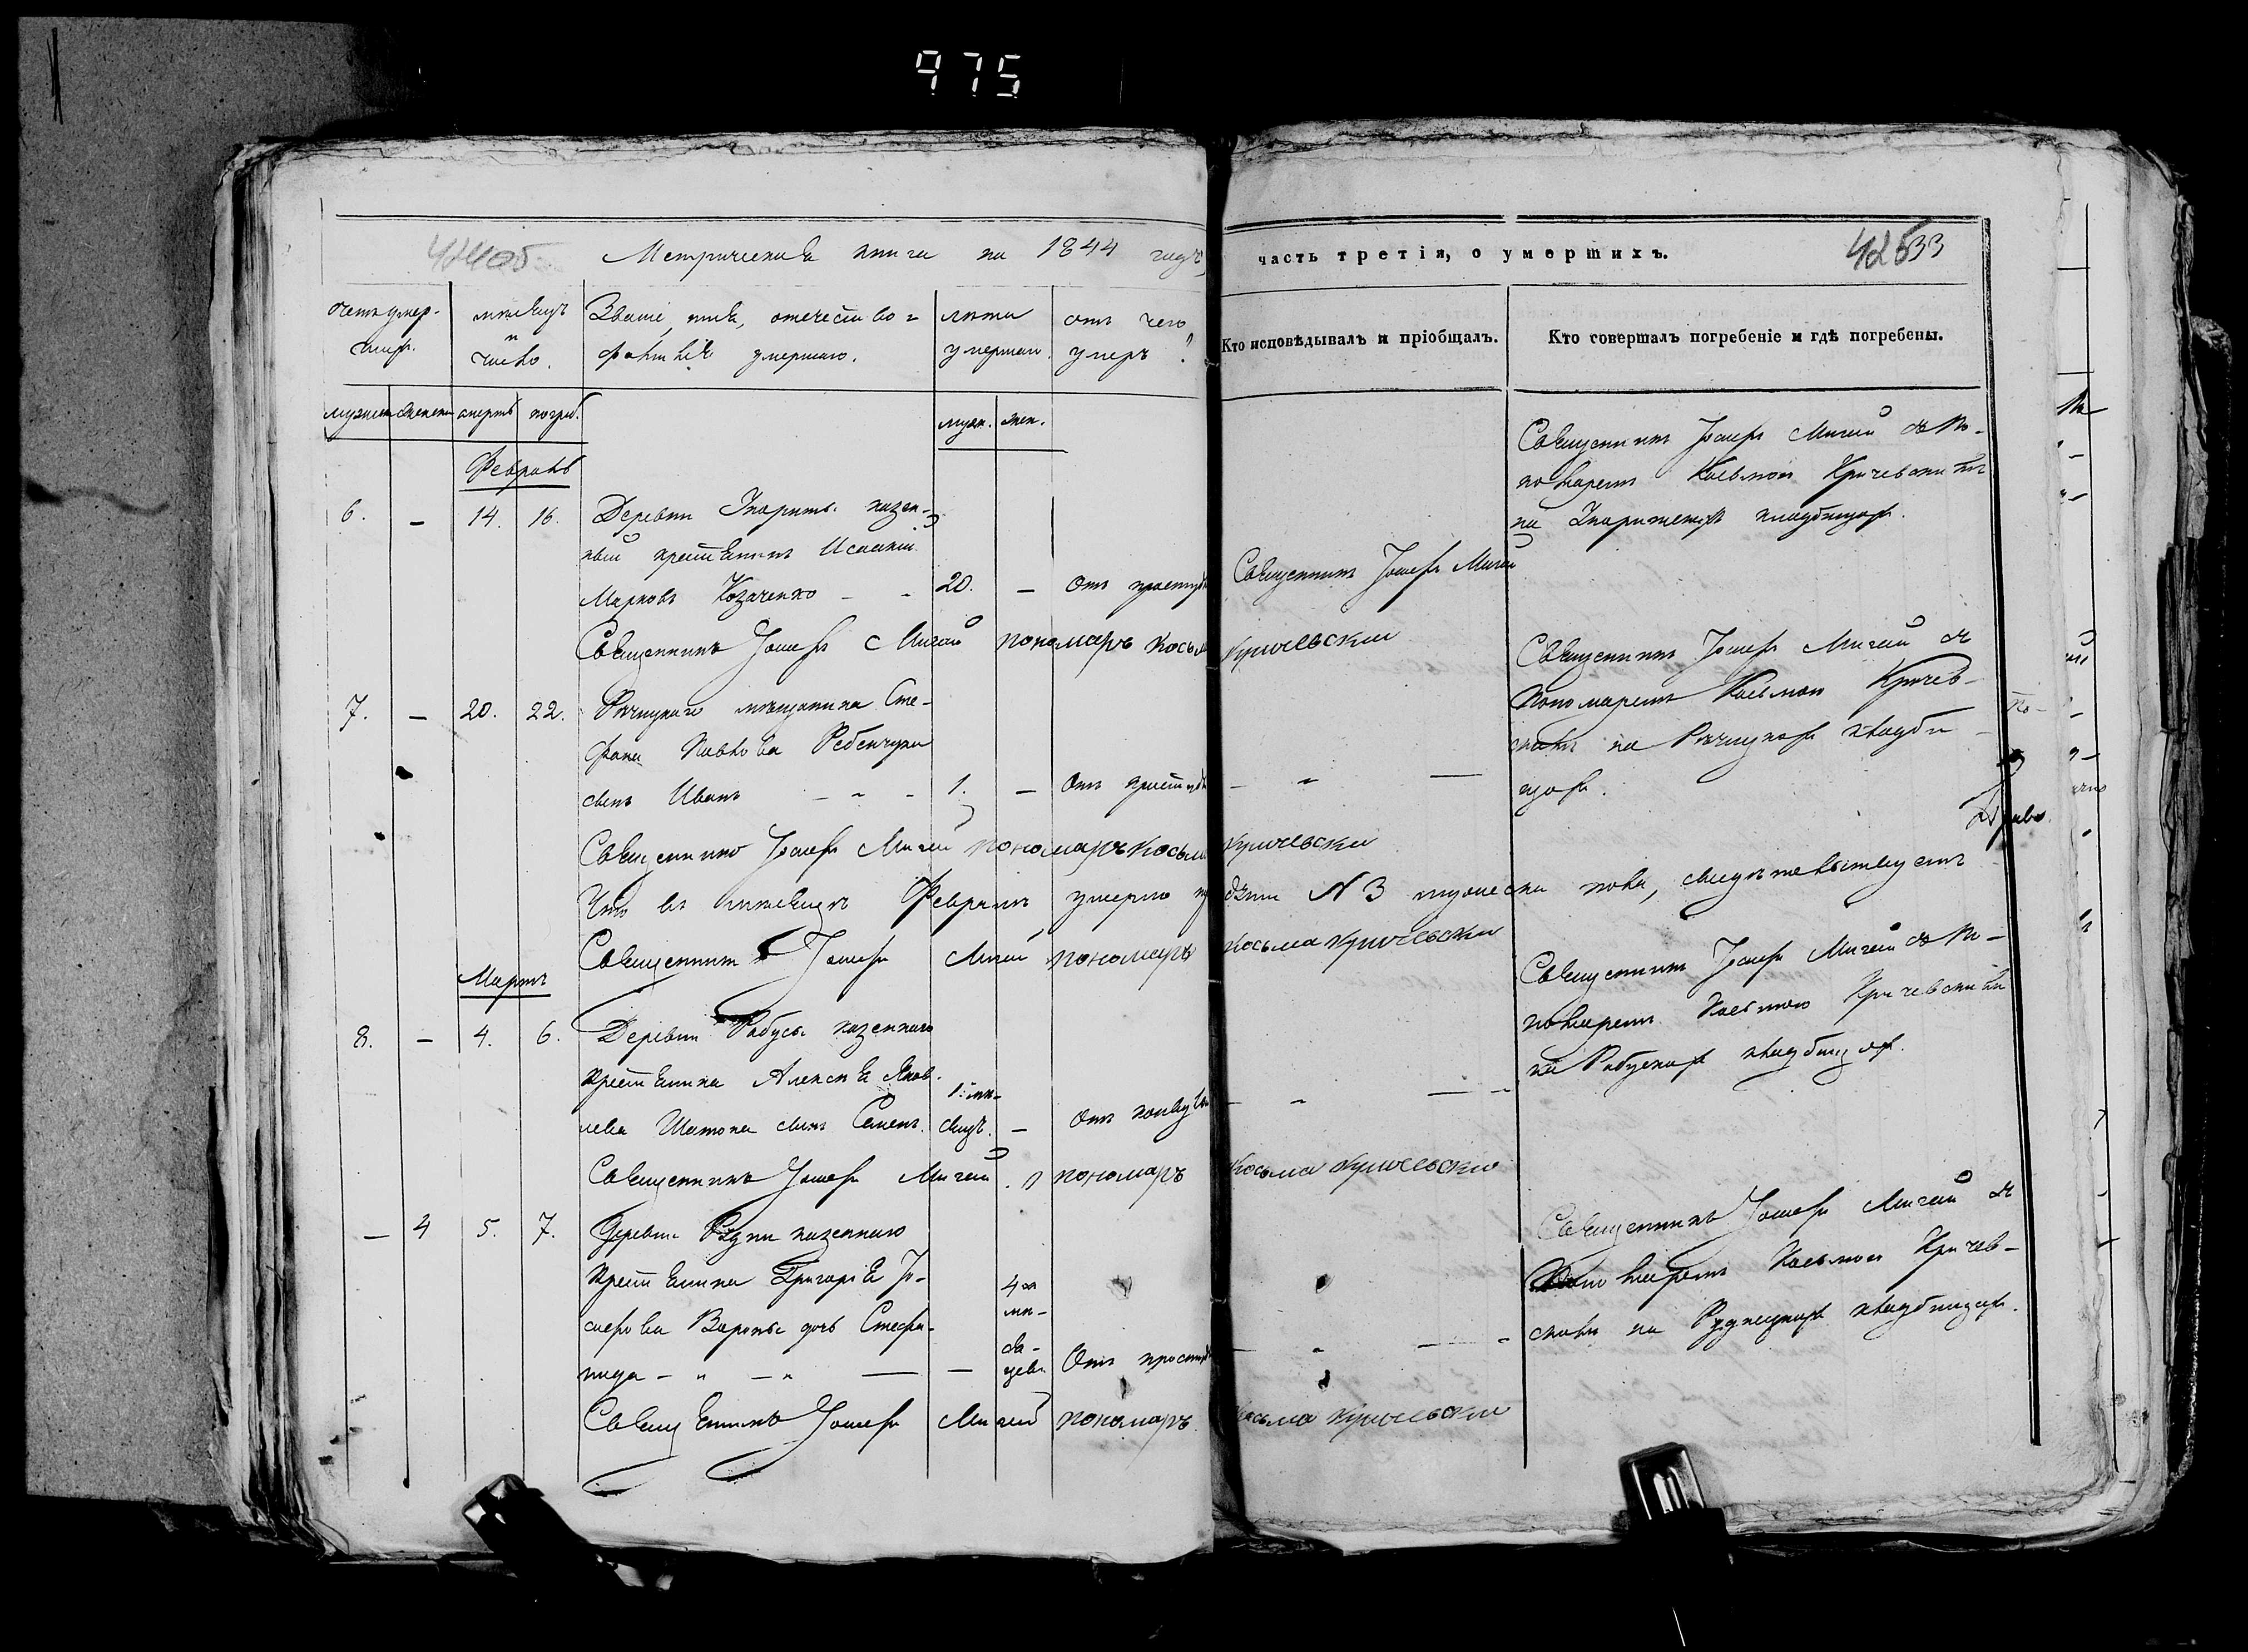 975
424об
Метрическая книга на 1844 годъ,
часть третія, о умершихъ.
425
33
Счетъ умер-
шихъ.
мѣсяцъ
и
число.
Званіе, имя, отечество и
фамилія умершаго.
лѣта
умершаго.
отъ чего
умеръ?
Кто исповѣдывалъ и пріобщалъ.
Кто совершалъ погребеніе и гдѣ погребены.
мужеск женск смерть погреб.
муж. жен.
Февраль
6. – 14. 16. Деревни казен-
ный крестьянинъ
Марковъ Козаченко – - 20. – Отъ простуды
Священникъ Іосифъ Мигай
Священникъ Іосифъ Мигай съ По-
номаремъ Косьмою Кричевскимъ
на кладбищѣ.
Священникъ Іосифъ Мигай пономарь Косьма Кричевскій
7. – 20. 22. Рѣчицкаго мѣщанина Сте-
фана Павлова
сынъ Иванъ – - - 1. – Отъ простуды – " —
Священникъ Іосифъ Мигай съ
Пономаремъ Косьмою Кричев-
скимъ на Рѣчицкомъ кладби-
щѣ.
Священникъ Іосифъ Мигай пономарь Косьма Кричевскій
Что въ мѣсяцѣ Февралѣ умерло N 3 мужеска пола, свидѣтельствуемъ
Священникъ Іосифъ Мигай пономарь Косьма Кричевскій
Мартъ
8. – 4. 6. Деревни казеннаго
крестьянина Алексѣя Яков-
лева сынъ Семенъ. 1: мѣ-
сяцъ. – Отъ – " —
Священникъ Іосифъ Мигай съ По-
номаремъ Косьмою Кричевскимъ
на кладбищѣ.
Священникъ Іосифъ Мигай пономарь Косьма Кричевскій
– 4 5. 7. Деревни Рудни казеннаго
крестьянина Григорія Іо-
сифова Вороны дочь Стефа-
нида – " – " — – 4хъ
мѣ-
ся-
цевъ Отъ простуды – " —
Священникъ Іосифъ Мигай съ
Пономаремъ Косьмою Кричев-
скимъ на кладбищѣ.
Священникъ Іосифъ Мигай пономарь Косьма Кричевскій